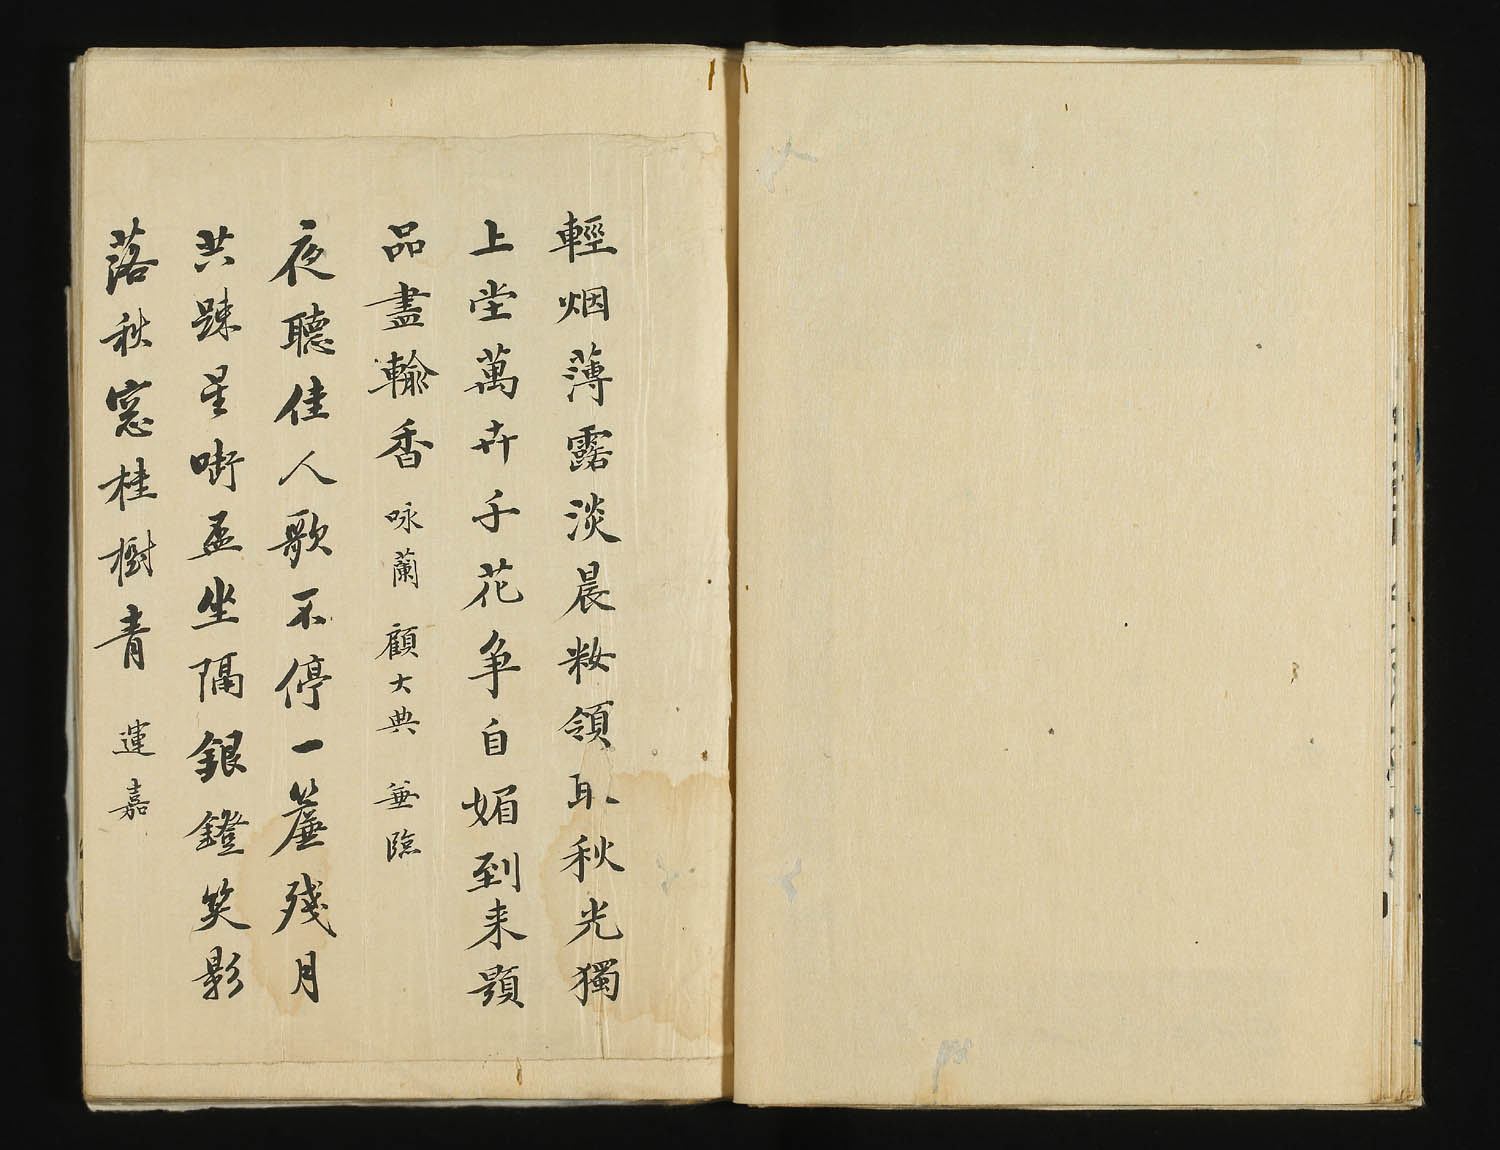 輕烟薄露淡晨籹領取秋光獨
上堂萬卉千花爭自媚到来題
品盡輸香 咏蘭 顧大典 臨
夜聽佳人歌不停一簾殘月
共踈星啣盃坐隔銀鐙笑影
落秋窓桂樹青 運嘉